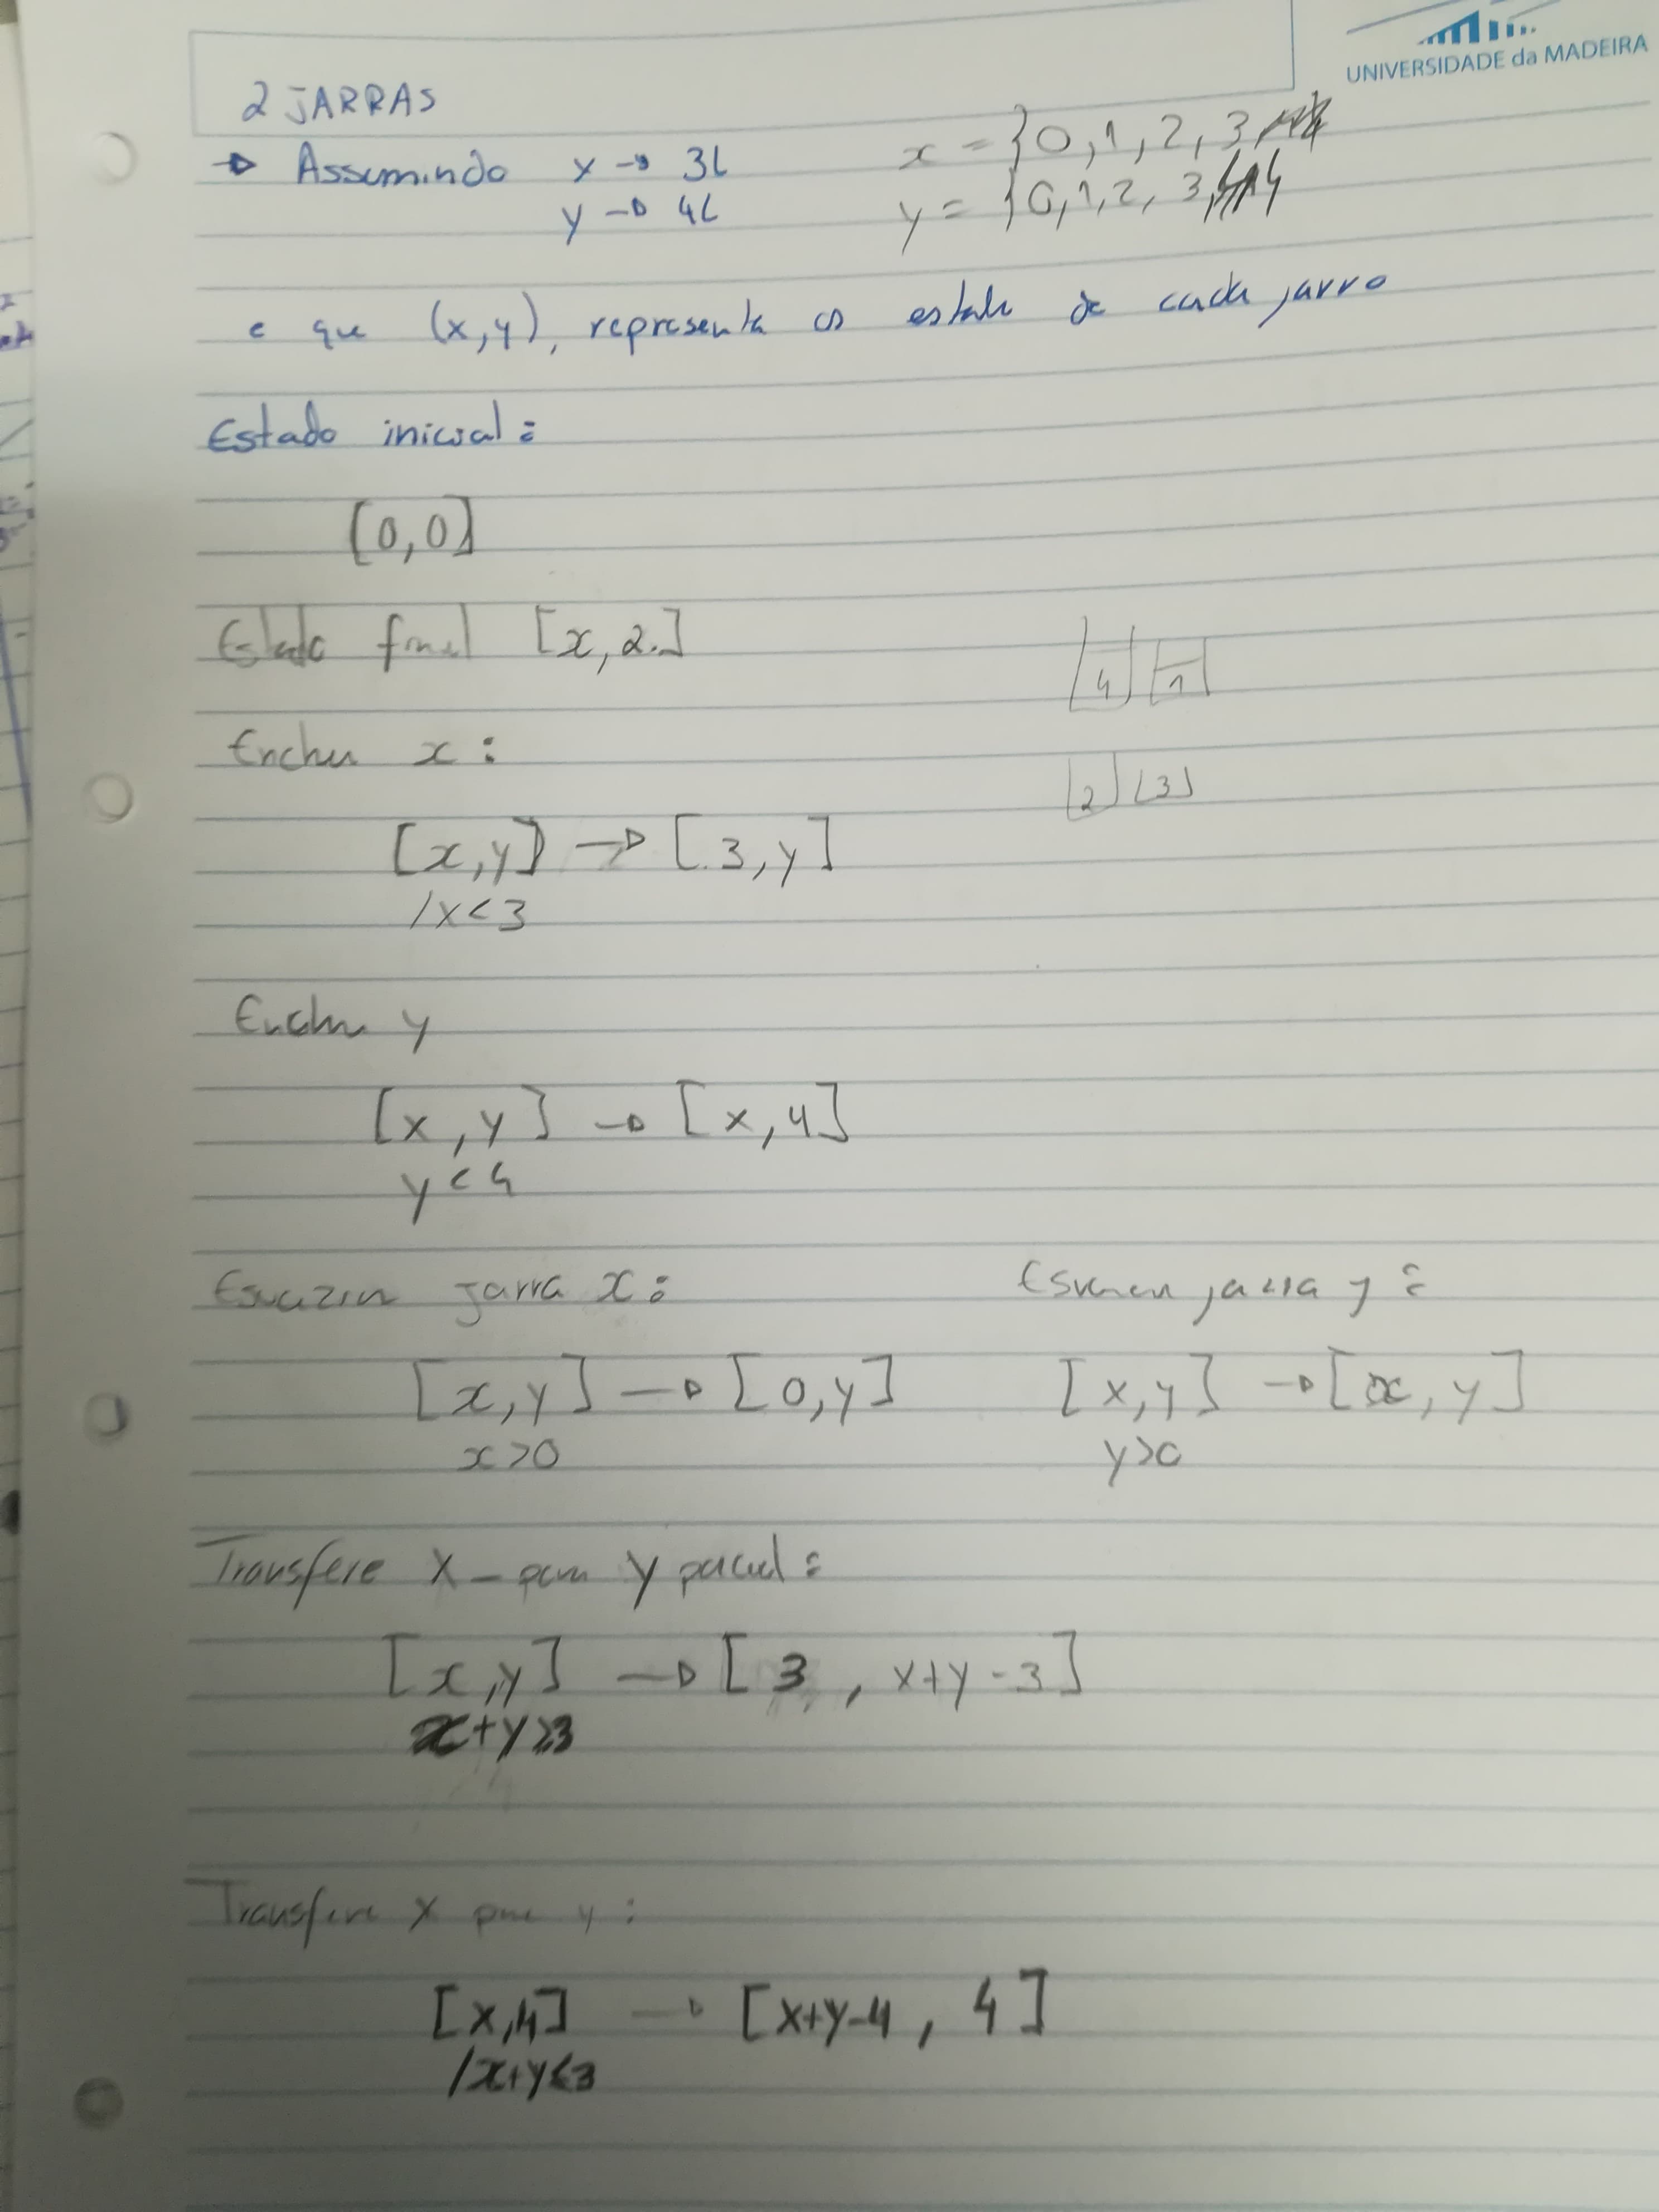 UNIVERSIDADE da MADEIRA
2 JARRAS
→ Assumindo x → 3L
y → 4L
x = {0,1,2,3
y = {0,1,2,3,
e que (x,y), representa os estado de cada jarro
Estado inicial:
[0,0]
Estado final [x,2.]
4 1
Encher x:
2 3
[x,y] → [.3,y]
/x<3
Encher y
[x,y] → [x,4]
y<4
Esvaziar jarra x:
Esvaziar jarra y:
[x,y] → [0,y]
[x,y] → [x,y]
x>0
y>0
Transfere x - para y parcial:
[x,y] → [3, x+y-3]
x+y≥3
Transfere x para y:
[x,4] → [x+y-4, 4]
/x+y≤3